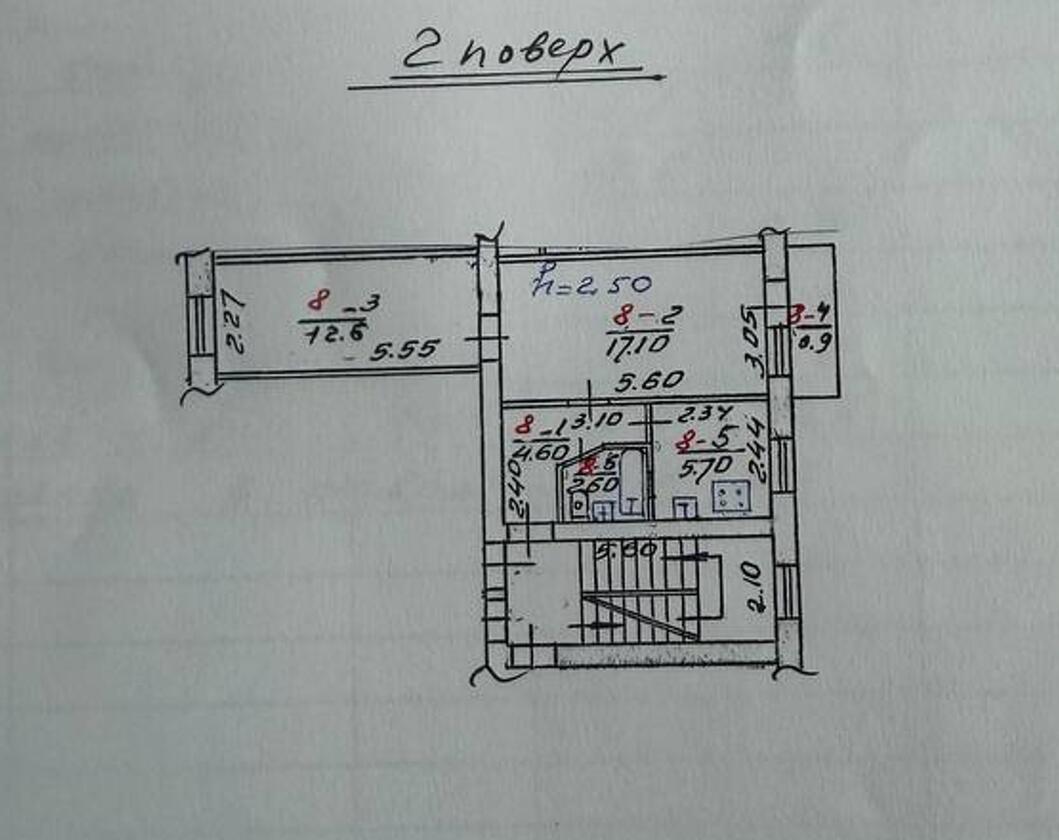 2 поверх
h=2.50
8-3
12.6
2.27
5.55
8-2
17.10
3.05
5.60
8-4
0.9
8-1
4.60
3.10
2.34
8-5
5.70
2.44
8-6
2.60
2.40
5.60
2.10